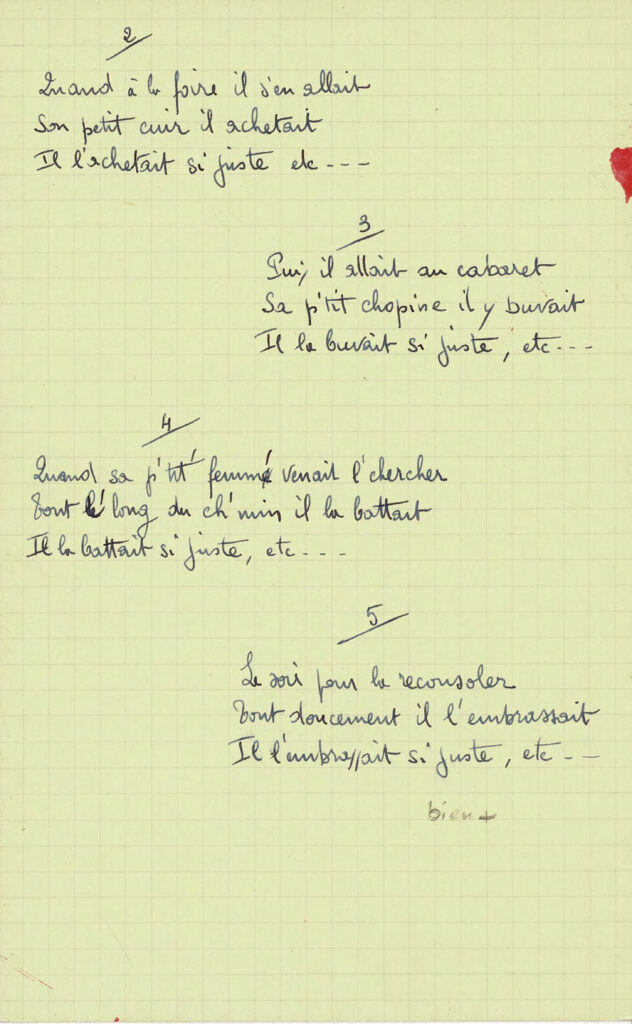 2
Quand à la foire il s'en allait
Son petit cuir il achetait
Il l'achetait si juste etc ---
3
Puis il allait au cabaret
Sa p'tit chopine il y buvait
Il la buvait si juste, etc ---
4
Quand sa p'tit' femm' venait l'chercher
Tout l' long du ch'min il la battait
Il la battait si juste, etc ---
5
Le soir pour la reconsoler
Tout doucement il l'embrassait
Il l'embrassait si juste, etc --
bien +